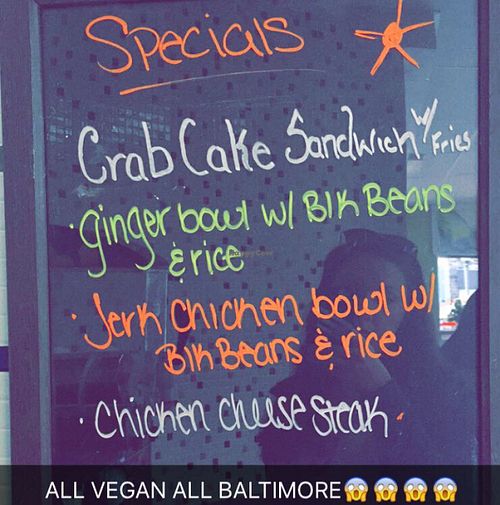 Specials
Crab Cake Sandwich w/ Fries
· Ginger bowl w/ Blk Beans
& rice
· Jerk Chicken bowl w/
Blk Beans & rice
· Chicken cheese steak ·
ALL VEGAN ALL BALTIMORE😱😱😱😱